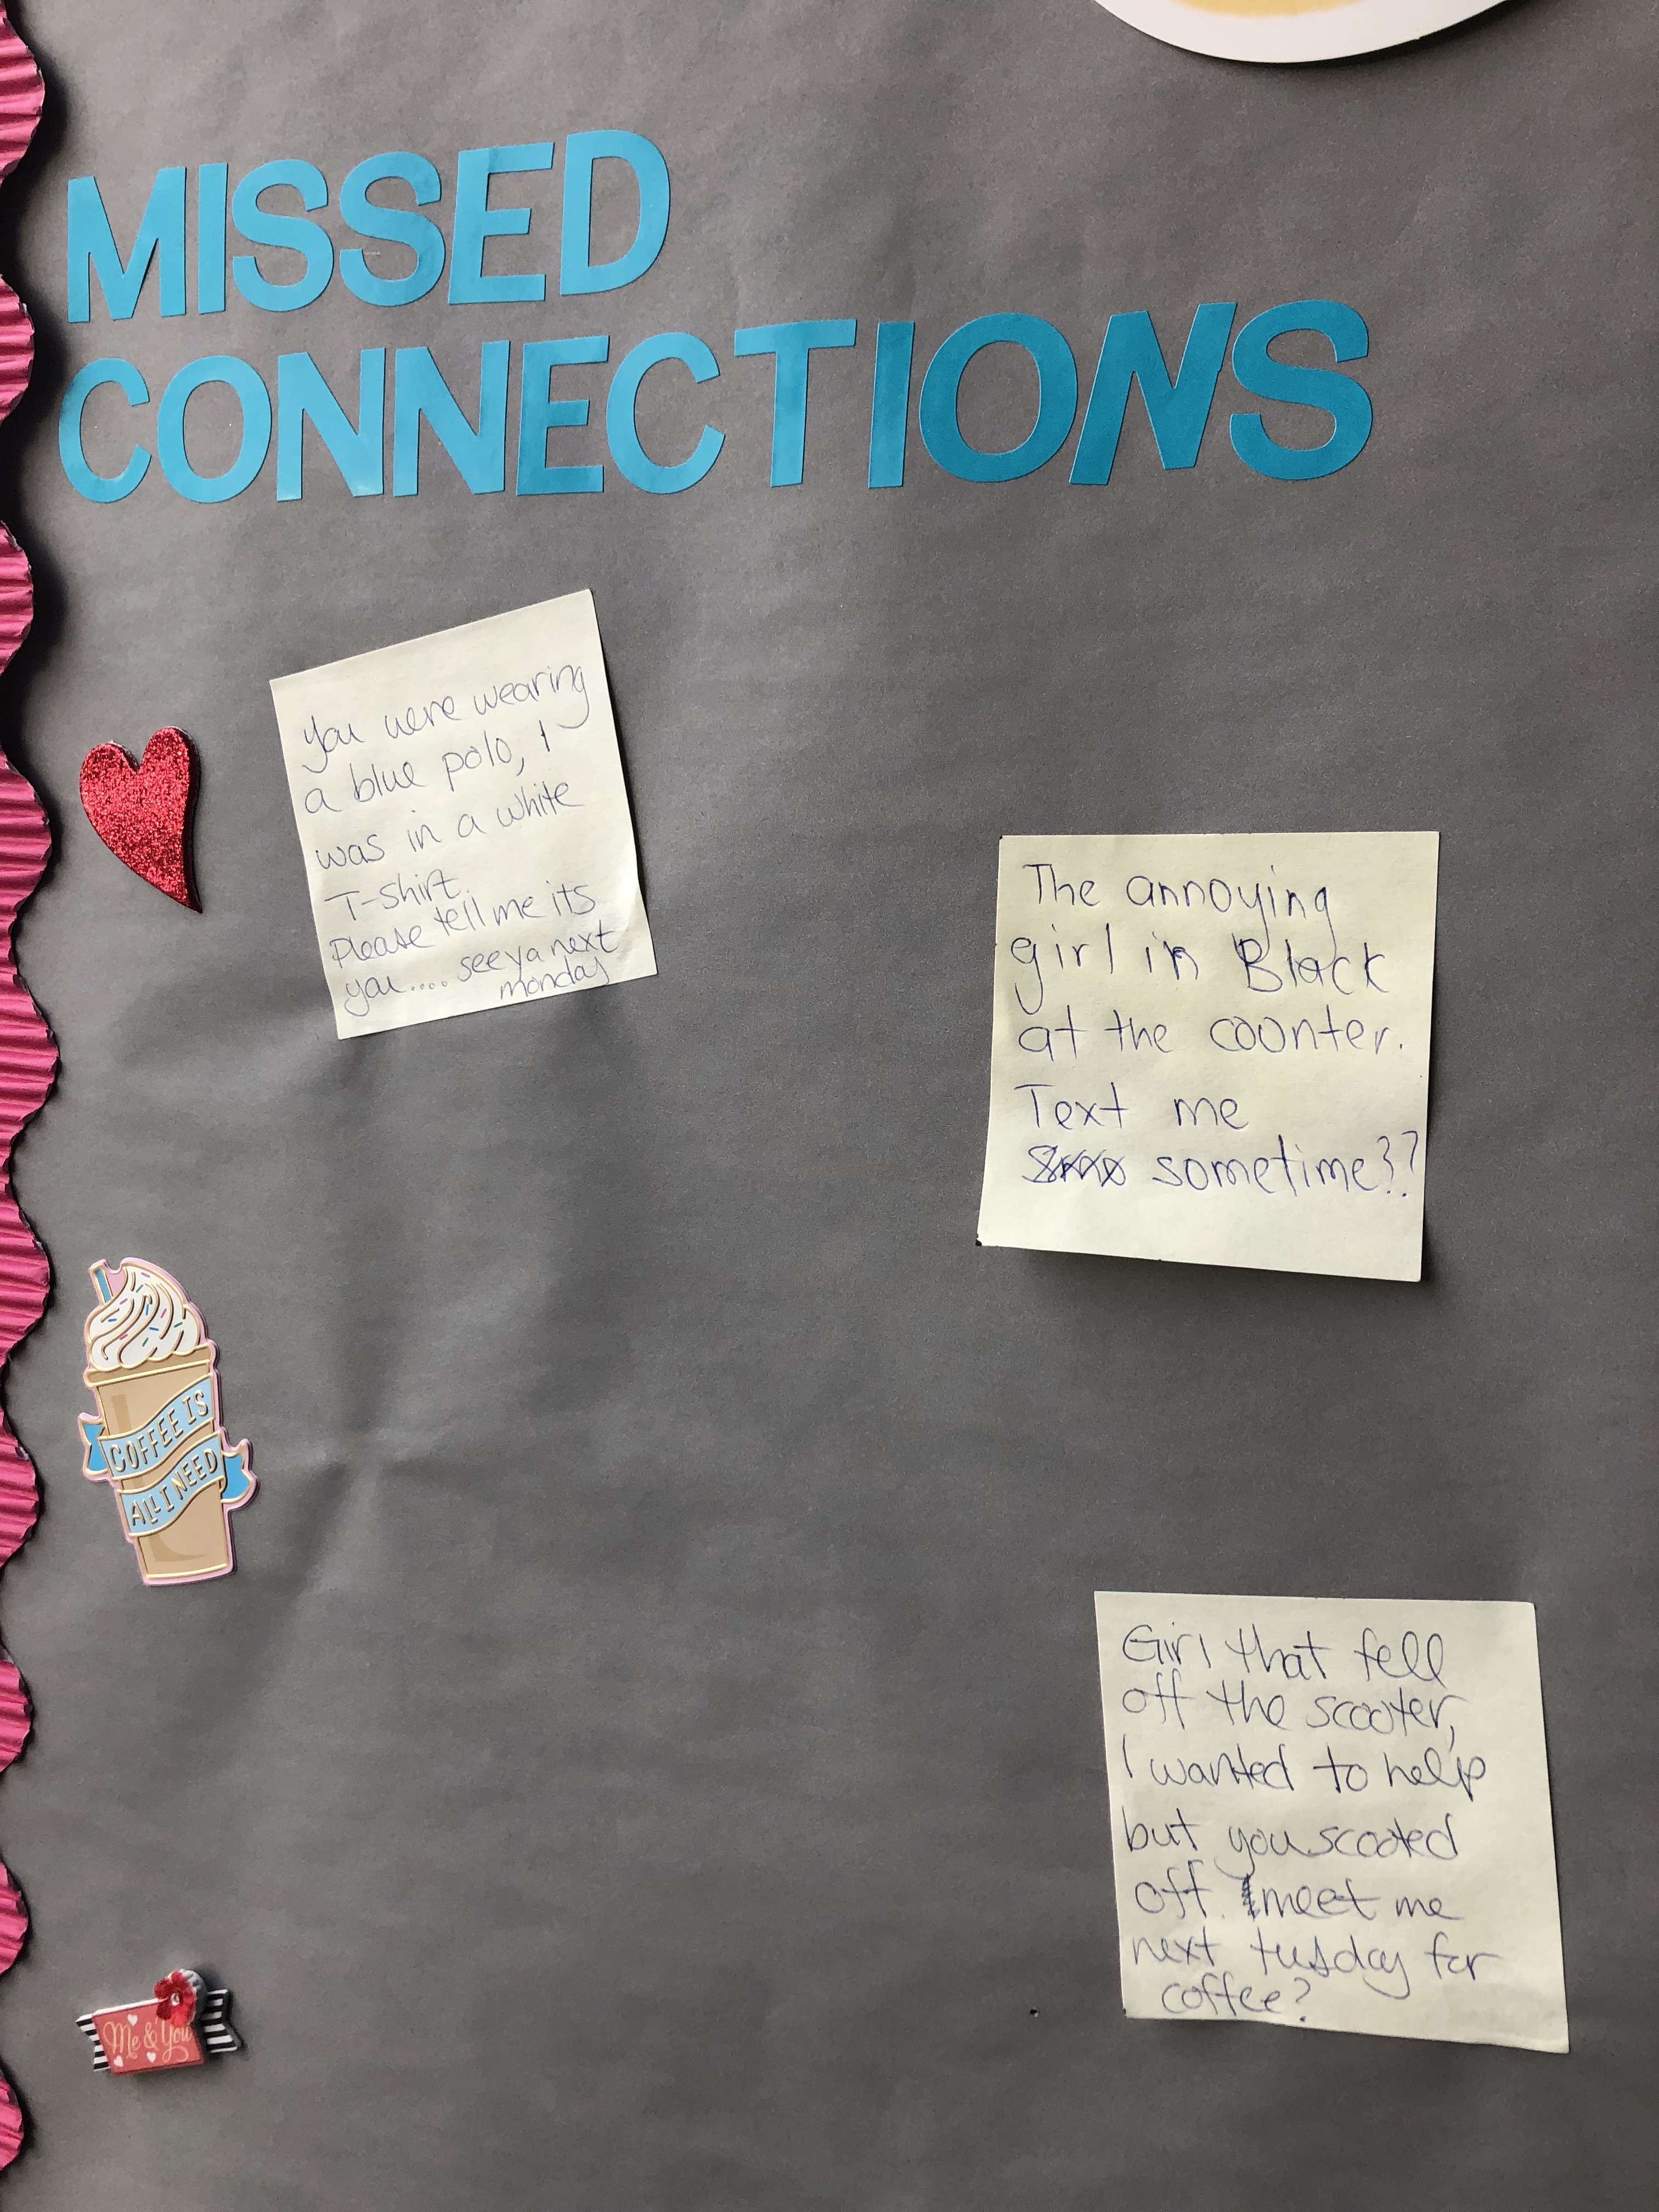 MISSED
CONNECTIONS
you were wearing
a blue polo, I
was in a white
T-shirt.
Please tell me its
you.... see ya next
monday
The annoying
girl in Black
at the counter.
Text me
sometime??
COFFEE IS
ALL I NEED
Girl that fell
off the scooter,
I wanted to help
but you scooted
off. meet me
next tusday for
coffee?
Me & You